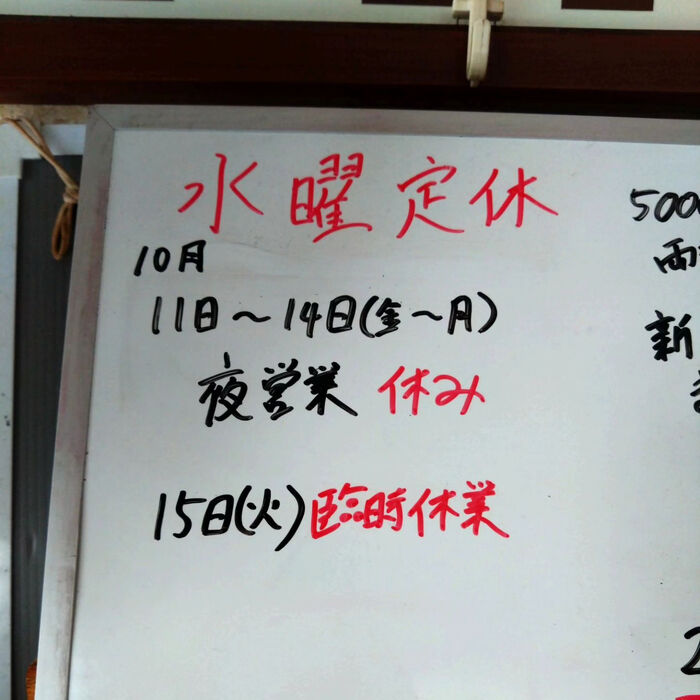 水曜定休
10月
11日～14日(金～月)
夜営業 休み
15日(火)臨時休業
500
両
新